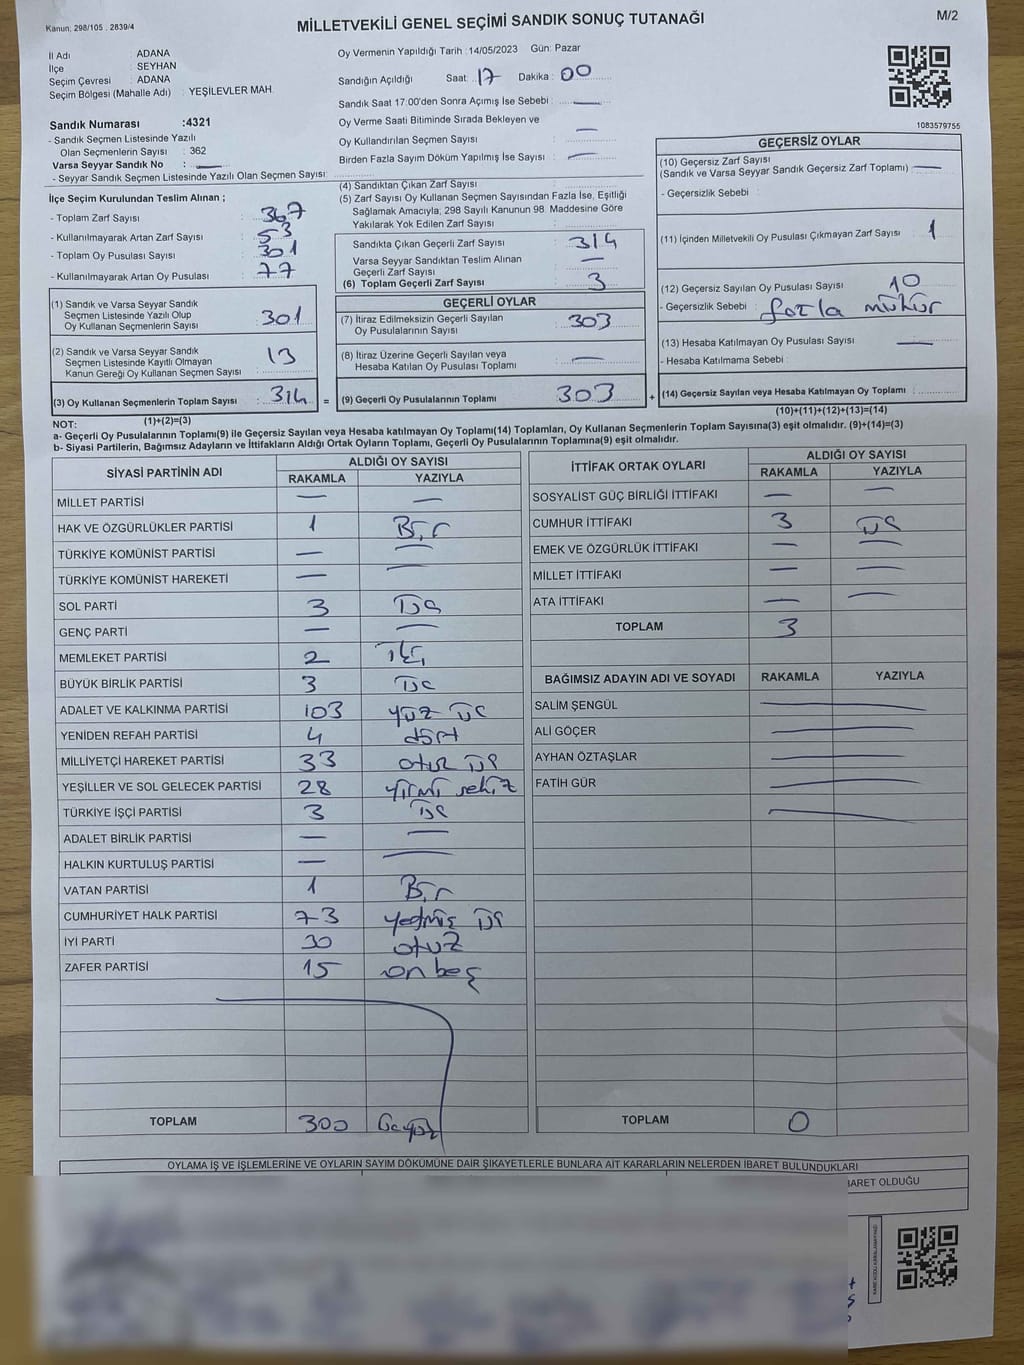 Kanun, 298/105 : 2839/4
MİLLETVEKİLİ GENEL SEÇİMİ SANDIK SONUÇ TUTANAĞI
M/2
İl Adı : ADANA
İlçe : SEYHAN
Seçim Çevresi : ADANA
Seçim Bölgesi (Mahalle Adı) : YEŞİLEVLER MAH.
Oy Vermenin Yapıldığı Tarih : 14/05/2023 Gün: Pazar
Sandığın Açıldığı Saat: 17 Dakika : 00
Sandık Saat 17:00'den Sonra Açımış İse Sebebi : —
Oy Verme Saati Bitiminde Sırada Bekleyen ve
Oy Kullandırılan Seçmen Sayısı : —
Birden Fazla Sayım Döküm Yapılmış İse Sayısı : —
1083579755
Sandık Numarası :4321
- Sandık Seçmen Listesinde Yazılı
Olan Seçmenlerin Sayısı : 362
Varsa Seyyar Sandık No : —
- Seyyar Sandık Seçmen Listesinde Yazılı Olan Seçmen Sayısı:
İlçe Seçim Kurulundan Teslim Alınan ;
- Toplam Zarf Sayısı : 367
- Kullanılmayarak Artan Zarf Sayısı : 53
- Toplam Oy Pusulası Sayısı : 301
- Kullanılmayarak Artan Oy Pusulası : 77
(1) Sandık ve Varsa Seyyar Sandık
Seçmen Listesinde Yazılı Olup
Oy Kullanan Seçmenlerin Sayısı : 301
(2) Sandık ve Varsa Seyyar Sandık
Seçmen Listesinde Kayıtlı Olmayan
Kanun Gereği Oy Kullanan Seçmen Sayısı : 13
(3) Oy Kullanan Seçmenlerin Toplam Sayısı : 314 =
(1)+(2)=(3)
(4) Sandıktan Çıkan Zarf Sayısı :
(5) Zarf Sayısı Oy Kullanan Seçmen Sayısından Fazla İse, Eşitliği
Sağlamak Amacıyla, 298 Sayılı Kanunun 98. Maddesine Göre
Yakılarak Yok Edilen Zarf Sayısı :
Sandıkta Çıkan Geçerli Zarf Sayısı : 314
Varsa Seyyar Sandıktan Teslim Alınan
Geçerli Zarf Sayısı : —
(6) Toplam Geçerli Zarf Sayısı : 3
GEÇERLİ OYLAR
(7) İtiraz Edilmeksizin Geçerli Sayılan
Oy Pusulalarının Sayısı : 303
(8) İtiraz Üzerine Geçerli Sayılan veya
Hesaba Katılan Oy Pusulası Toplamı : —
(9) Geçerli Oy Pusulalarının Toplamı : 303 +
GEÇERSİZ OYLAR
(10) Geçersiz Zarf Sayısı
(Sandık ve Varsa Seyyar Sandık Geçersiz Zarf Toplamı) : —
- Geçersizlik Sebebi :
(11) İçinden Milletvekili Oy Pusulası Çıkmayan Zarf Sayısı : 1
(12) Geçersiz Sayılan Oy Pusulası Sayısı : 10
- Geçersizlik Sebebi : fazla mühür
(13) Hesaba Katılmayan Oy Pusulası Sayısı : —
- Hesaba Katılmama Sebebi :
(14) Geçersiz Sayılan veya Hesaba Katılmayan Oy Toplamı :
(10)+(11)+(12)+(13)=(14)
NOT:
a- Geçerli Oy Pusulalarının Toplamı(9) ile Geçersiz Sayılan veya Hesaba katılmayan Oy Toplamı(14) Toplamları, Oy Kullanan Seçmenlerin Toplam Sayısına(3) eşit olmalıdır. (9)+(14)=(3)
b- Siyasi Partilerin, Bağımsız Adayların ve İttifakların Aldığı Ortak Oyların Toplamı, Geçerli Oy Pusulalarının Toplamına(9) eşit olmalıdır.
SİYASİ PARTİNİN ADI ALDIĞI OY SAYISI
RAKAMLA YAZIYLA
MİLLET PARTİSİ — —
HAK VE ÖZGÜRLÜKLER PARTİSİ 1 Bir
TÜRKİYE KOMÜNİST PARTİSİ — —
TÜRKİYE KOMÜNİST HAREKETİ — —
SOL PARTİ 3 üç
GENÇ PARTİ — —
MEMLEKET PARTİSİ 2 iki
BÜYÜK BİRLİK PARTİSİ 3 üç
ADALET VE KALKINMA PARTİSİ 103 yüz üç
YENİDEN REFAH PARTİSİ 4 dört
MİLLİYETÇİ HAREKET PARTİSİ 33 otuz üç
YEŞİLLER VE SOL GELECEK PARTİSİ 28 yirmi sekiz
TÜRKİYE İŞÇİ PARTİSİ 3 üç
ADALET BİRLİK PARTİSİ — —
HALKIN KURTULUŞ PARTİSİ — —
VATAN PARTİSİ 1 Bir
CUMHURİYET HALK PARTİSİ 73 yetmiş üç
İYİ PARTİ 30 otuz
ZAFER PARTİSİ 15 on beş
TOPLAM 300 üçyüz
İTTİFAK ORTAK OYLARI ALDIĞI OY SAYISI
RAKAMLA YAZIYLA
SOSYALİST GÜÇ BİRLİĞİ İTTİFAKI — —
CUMHUR İTTİFAKI 3 üç
EMEK VE ÖZGÜRLÜK İTTİFAKI — —
MİLLET İTTİFAKI — —
ATA İTTİFAKI — —
TOPLAM 3
BAĞIMSIZ ADAYIN ADI VE SOYADI RAKAMLA YAZIYLA
SALİM ŞENGÜL
ALİ GÖÇER
AYHAN ÖZTAŞLAR
FATİH GÜR
TOPLAM 0
OYLAMA İŞ VE İŞLEMLERİNE VE OYLARIN SAYIM DÖKÜMÜNE DAİR ŞİKAYETLERLE BUNLARA AİT KARARLARIN NELERDEN İBARET BULUNDUKLARI
BARET OLDUĞU